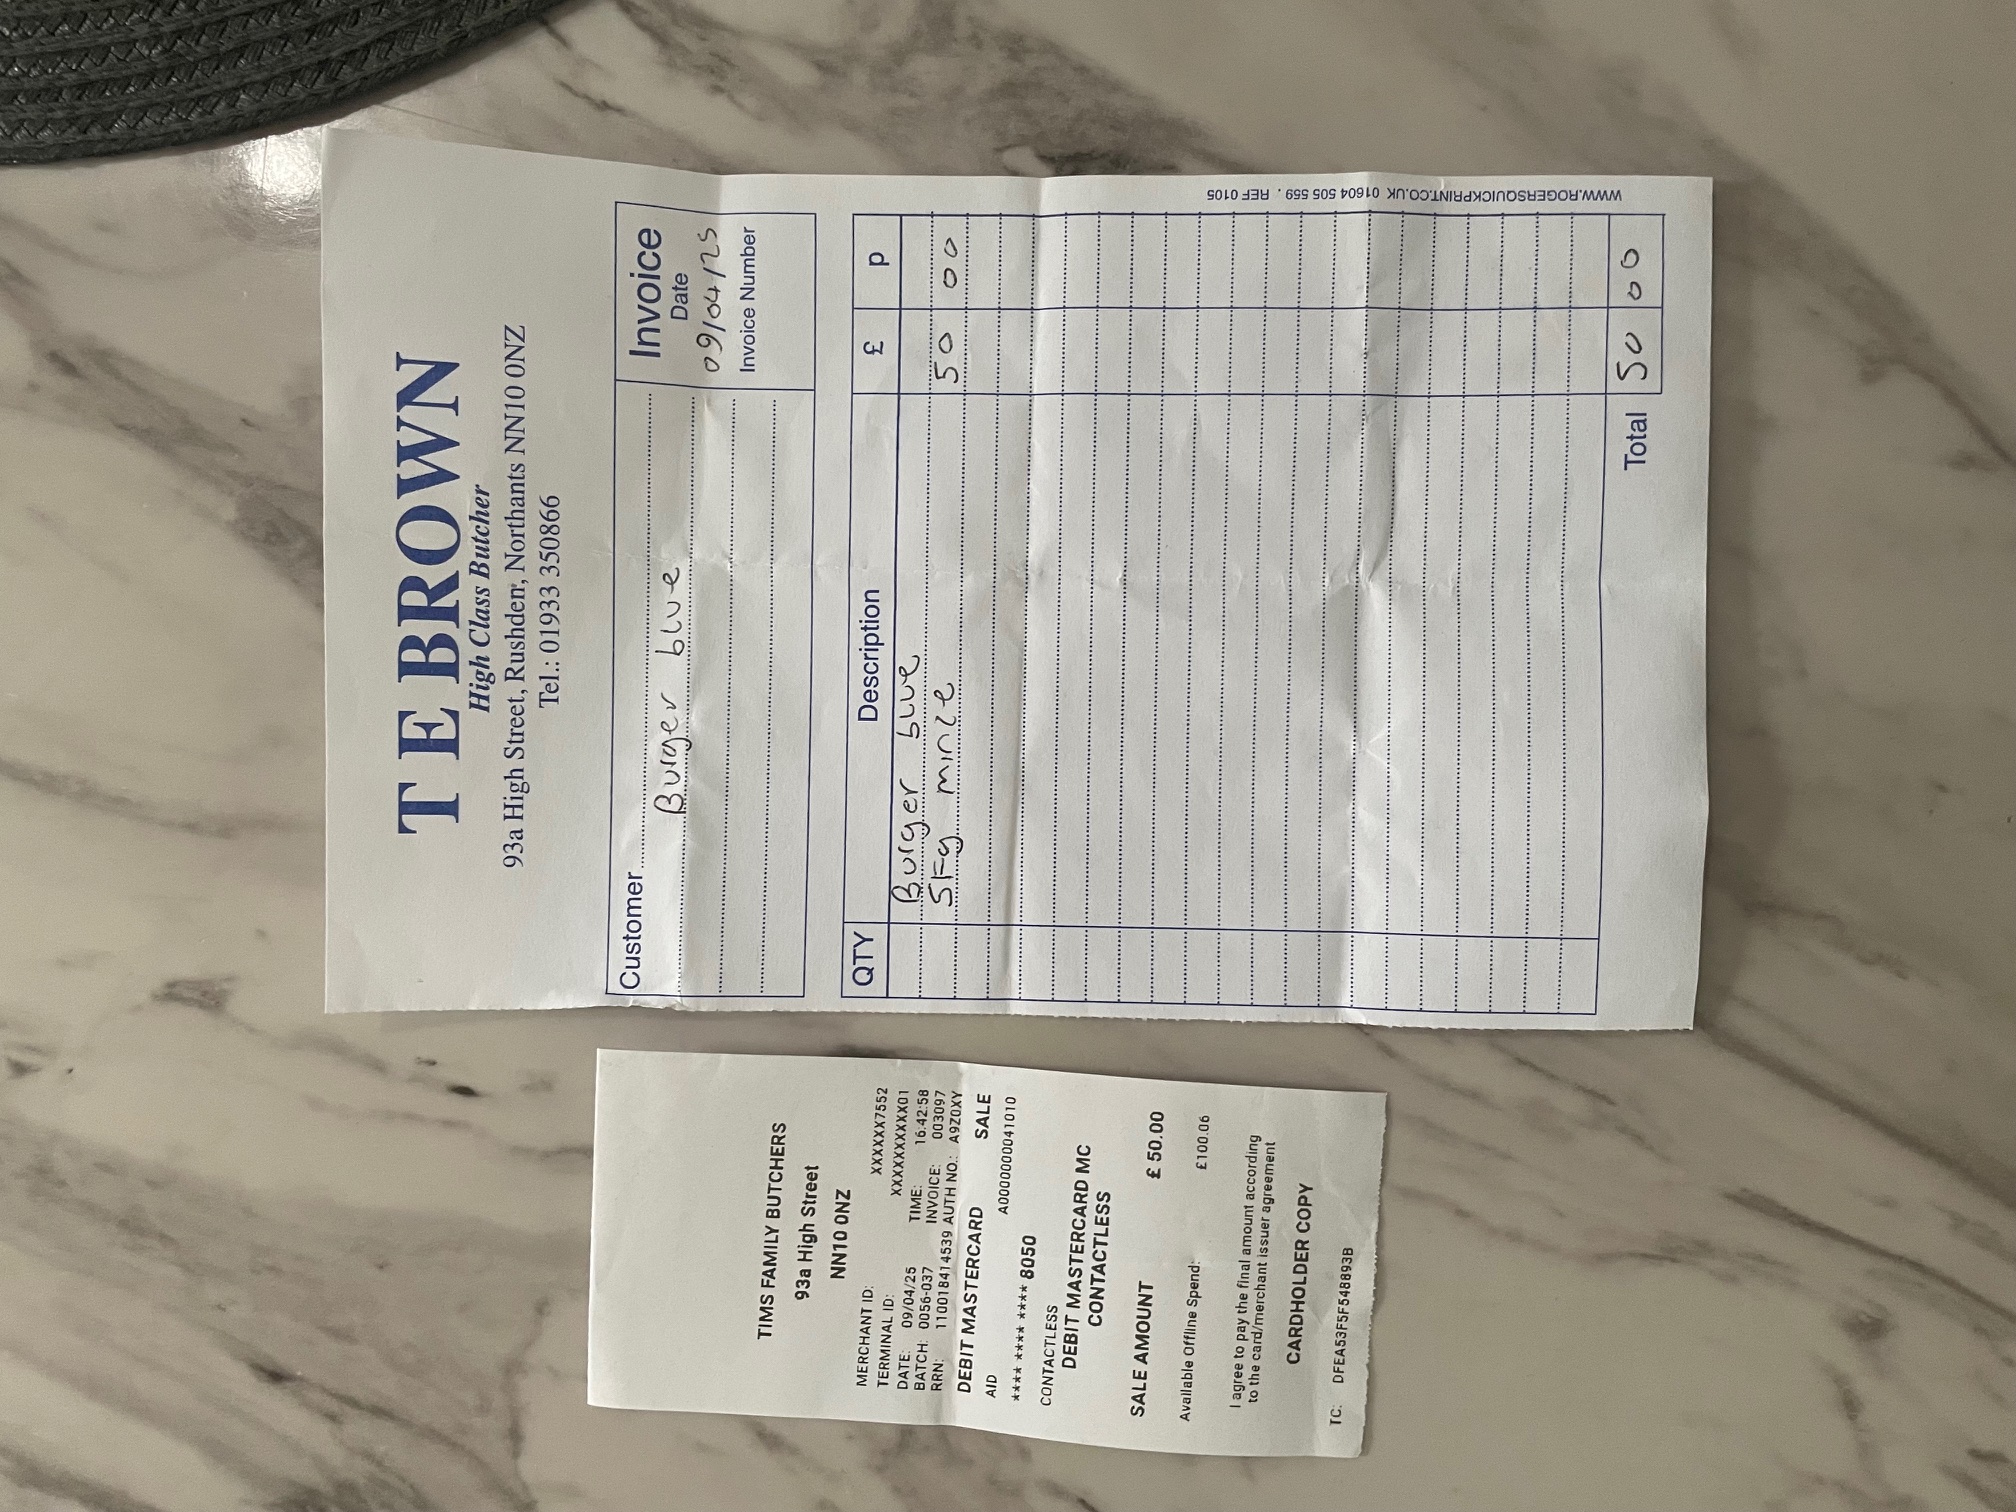 TIMS FAMILY BUTCHERS
93a High Street
NN10 0NZ
MERCHANT ID: XXXXXX7552
TERMINAL ID: XXXXXXXXXX01
DATE: 09/04/25 TIME: 16:42:58
BATCH: 0056-037 INVOICE: 003097
RRN: 110018414539 AUTH NO.: A9Z0XY
DEBIT MASTERCARD SALE
AID A0000000041010
**** **** **** 8050
CONTACTLESS
DEBIT MASTERCARD MC
CONTACTLESS
SALE AMOUNT £ 50.00
Available Offline Spend: £100.06
I agree to pay the final amount according
to the card/merchant issuer agreement
CARDHOLDER COPY
TC: DFEA53F5F548893B
T E BROWN
High Class Butcher
93a High Street, Rushden, Northants NN10 0NZ
Tel.: 01933 350866
Customer
Burger blue
Invoice
Date
09/04/25
Invoice Number
QTY Description £ p
Burger blue
5Kg minze 50 00
Total 50 00
WWW.ROGERSQUICKPRINT.CO.UK 01604 505 559 . REF 0105